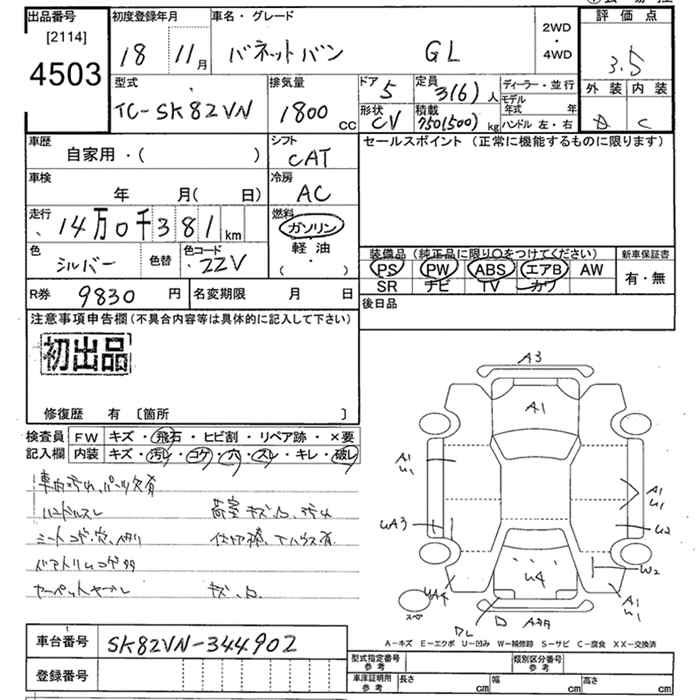 出品番号 初度登録年月 車名・グレード 2WD・4WD 評価点
[2114]
4503 18 11月 バネットバン GL 3.5
型式 排気量 ドア 5 定員 3(6)人 ディーラー・並行 外装 内装
TC-SK82VN 1800cc 形状 CV 積載 750(500)kg モデル年式 年 ハンドル 左・右 C
車歴 自家用・( ) シフト CAT セールスポイント (正常に機能するものに限ります)
車検 年 月(日) 冷房 AC
走行 14万0千381km 燃料 ガソリン 軽油 (・)
色 シルバー 色替 色コード ZZV
装備品 (純正品に限り○をつけてください) 新車保証書
PS PW ABS エアB AW 有・無
SR ナビ TV カワ
R券 9830円 名変期限 月 日 後日品
注意事項申告欄 (不具合内容等は具体的に記入して下さい)
初出品
修復歴 有 [箇所 ]
検査員 FW キズ・飛石・ヒビ割・リペア跡・×要
記入欄 内装 キズ・汚レ・コゲ・穴・スレ・キレ・破レ
車内汚れ、パーツ欠有
ハンドルスレ 荷室キズ、凸、汚れ
シートコゲ・穴、
キズ、凸
A3
A1
A1
U1
A1
U1
UA3
U2
W2
U4
UA4
A1
U1
スペ
D
A-キズ E-エクボ U-凹み W-補修跡 S-サビ C-腐食 XX-交換済
車台番号 SK82VN-344902
型式指定番号 参考 類別区分番号 参考
登録番号
車庫証明用 参考 長さ cm 幅 cm 高さ cm